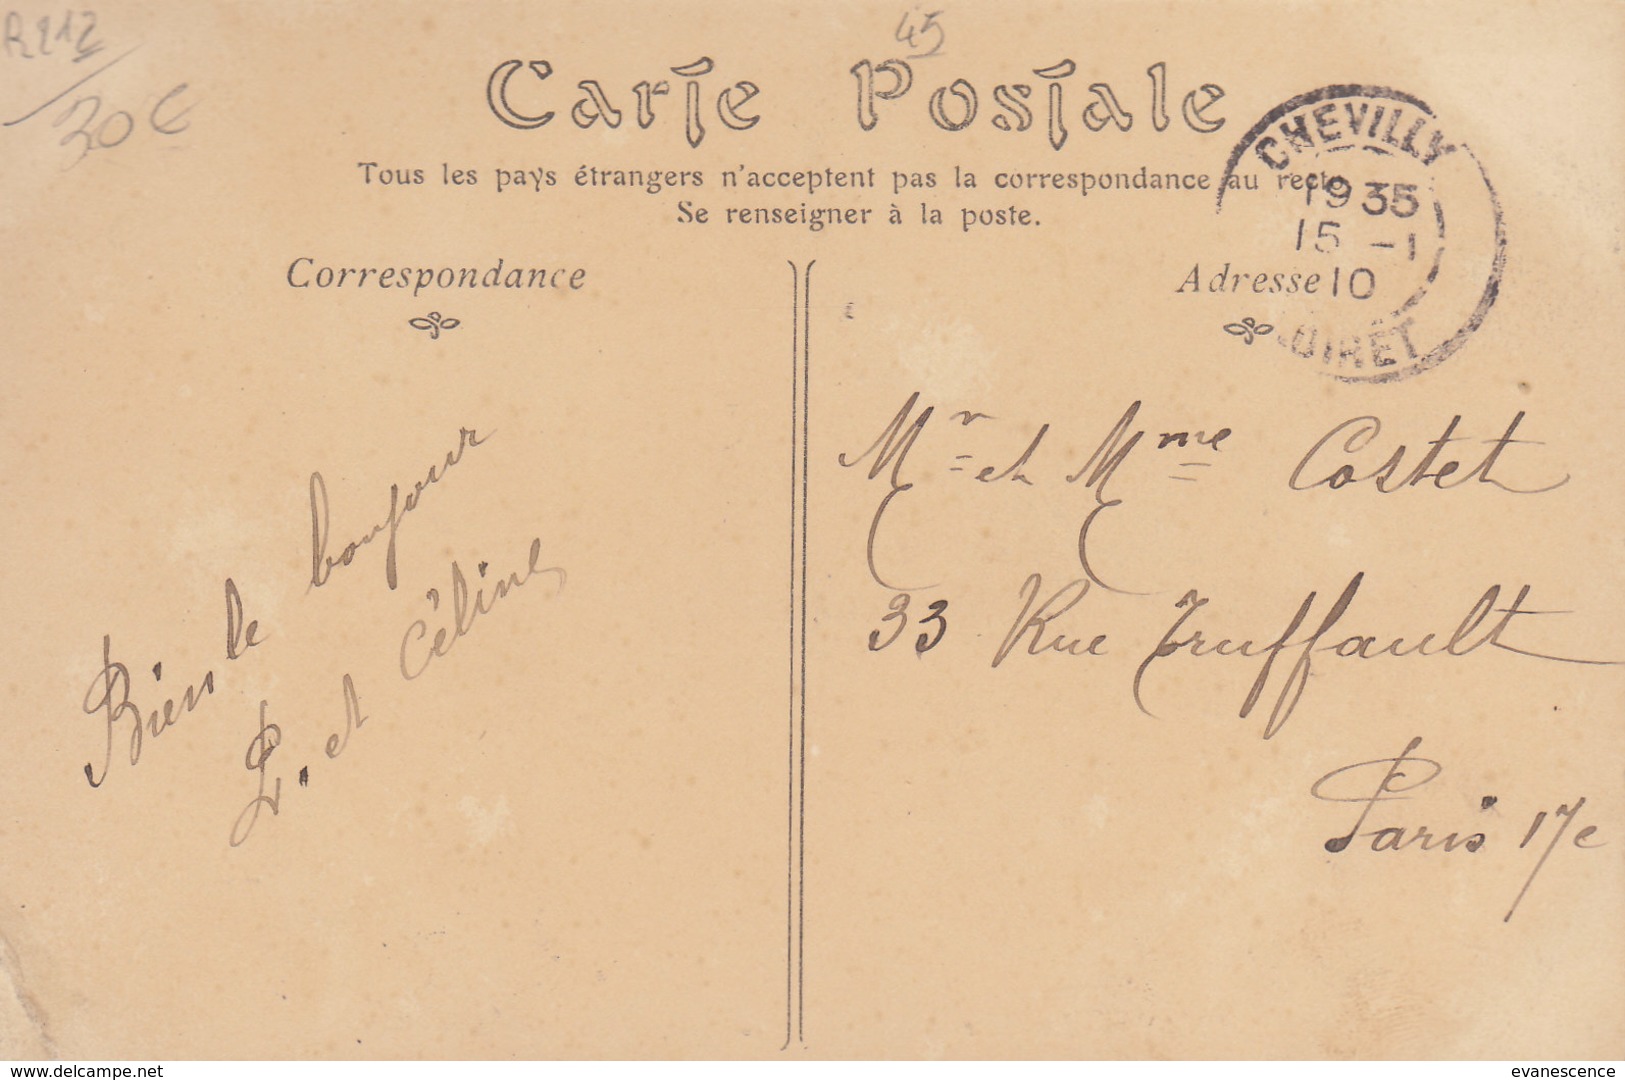 R212
30€
45
Carte Postale
Tous les pays étrangers n'acceptent pas la correspondance au recto
Se renseigner à la poste.
CHEVILLY
19 35
15 - 1
10
LOIRET
Correspondance
Adresse
Bien le bonjour
L. et Céline
Mr et Mme Costet
33 Rue Truffault
Paris 17e
www.delcampe.net
evanescence